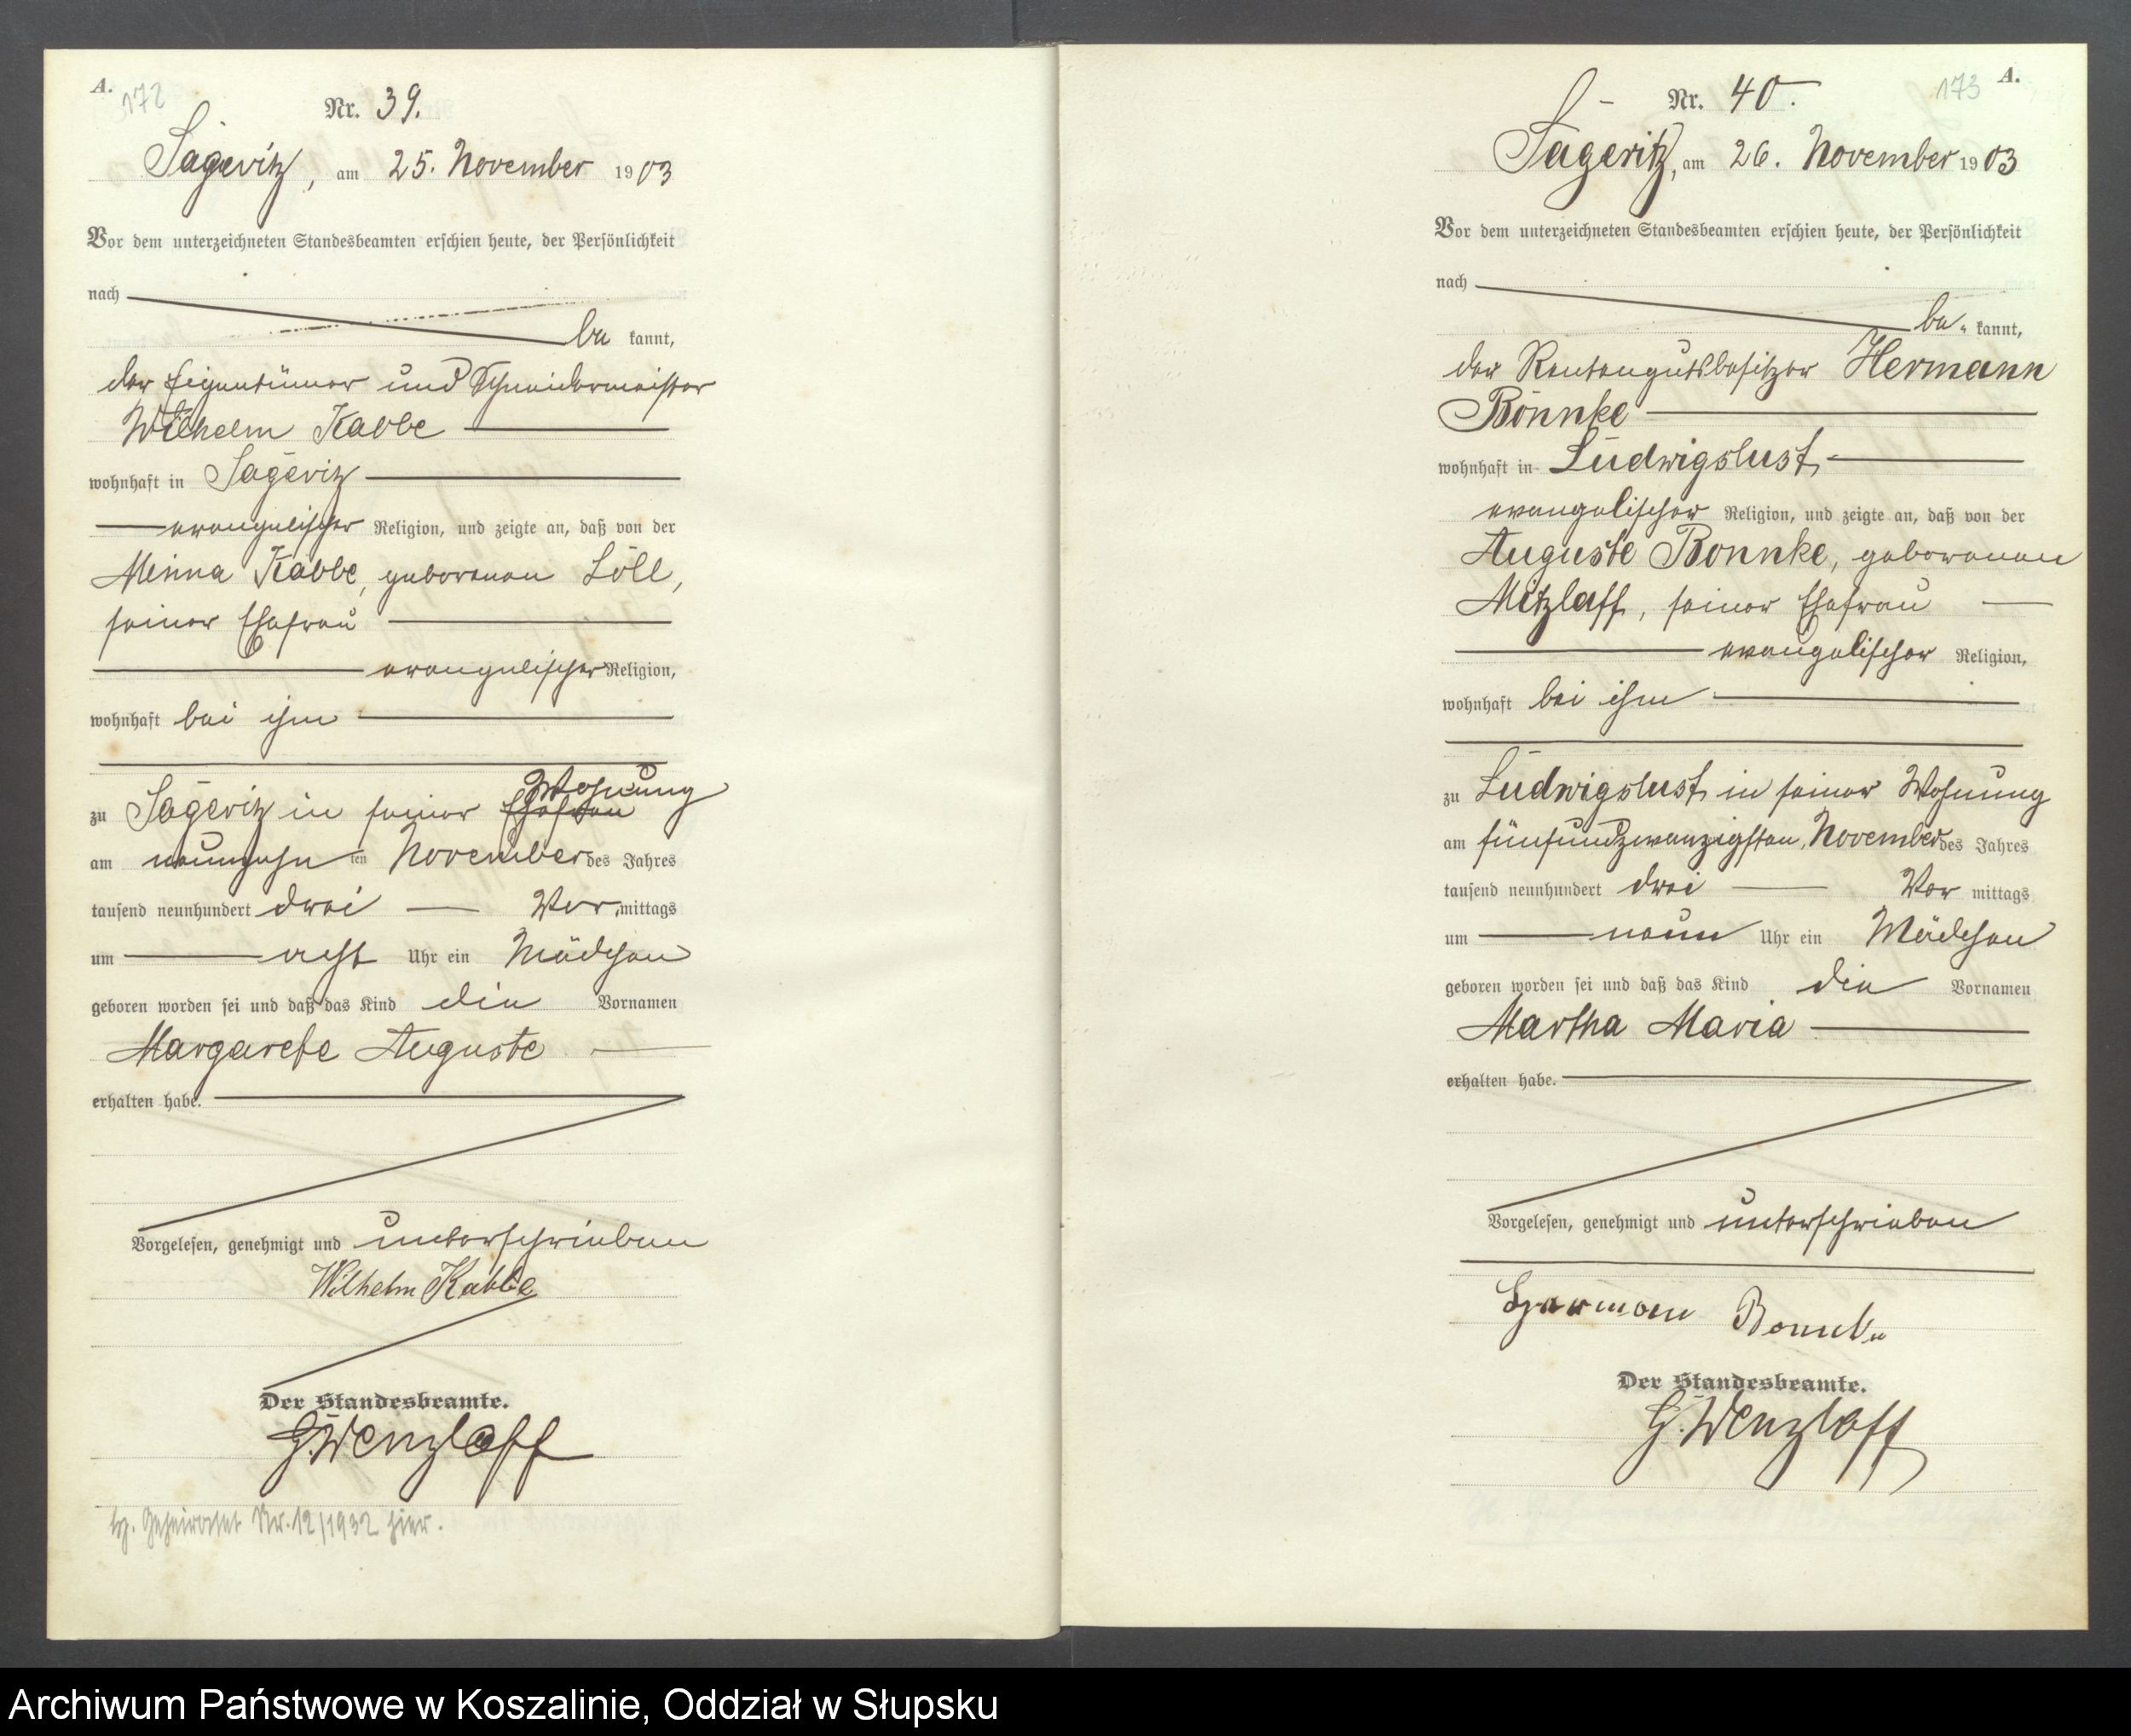 A.
172
Nr. 39.
Sageritz, am 25. November 1903
Vor dem unterzeichneten Standesbeamten erschien heute, der Persönlichkeit
nach
be kannt,
der Eigentümer und Schneidermeister
Wilhelm Kabbe
wohnhaft in Sageritz
evangelischer Religion, und zeigte an, daß von der
Minna Kabbe, geborenen Löll,
seiner Ehefrau
evangelischer Religion,
wohnhaft bei ihm
Wohnung
zu Sageritz in seiner Ehefrau
am neunzehn ten November des Jahres
tausend neunhundert drei Vor mittags
um acht Uhr ein Mädchen
geboren worden sei und daß das Kind die Vornamen
Margarete Auguste
erhalten habe.
Vorgelesen, genehmigt und unterschrieben
Wilhelm Kabbe
Der Standesbeamte.
G. Wenzlaff
Nr. 12/1932 hier.
173
A.
Nr. 40.
Sageritz, am 26. November 1903
Vor dem unterzeichneten Standesbeamten erschien heute, der Persönlichkeit
nach
be kannt,
der Rentengutsbesitzer Hermann
Bonnke
wohnhaft in Ludwigslust,
evangelischer Religion, und zeigte an, daß von der
Auguste Bonnke, geborenen
Mitzlaff, seiner Ehefrau
evangelischer Religion,
wohnhaft bei ihm
zu Ludwigslust in seiner Wohnung
am fünfundzwanzigsten November des Jahres
tausend neunhundert drei Vor mittags
um neun Uhr ein Mädchen
geboren worden sei und daß das Kind die Vornamen
Martha Maria
erhalten habe.
Vorgelesen, genehmigt und unterschrieben
Hermann Bonnke
Der Standesbeamte.
G. Wenzlaff
Archiwum Państwowe w Koszalinie, Oddział w Słupsku